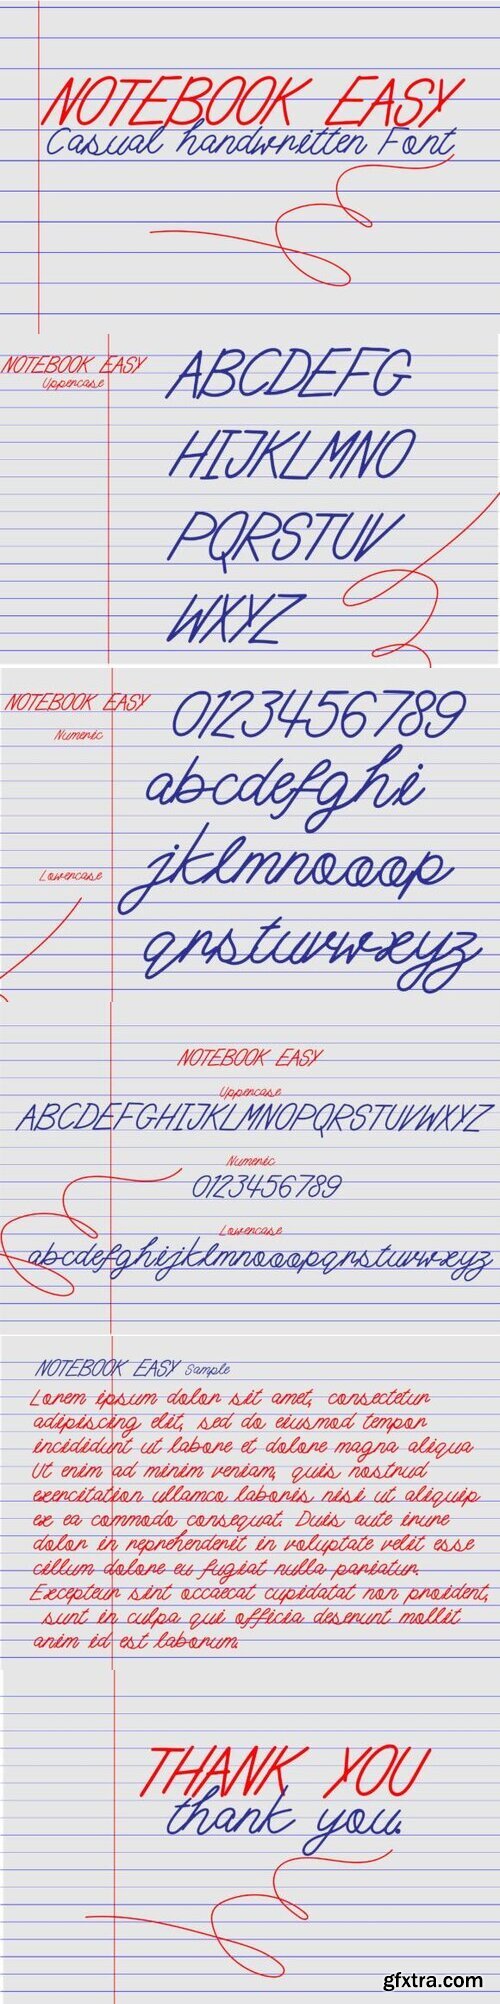 NOTEBOOK EASY
Casual handwritten Font
NOTEBOOK EASY
Uppercase
ABCDEFG
HIJKLMNO
PQRSTUV
WXYZ
NOTEBOOK EASY
Numeric
0123456789
abcdefghi
Lowercase
jklmnoooop
qrstuvwxyz
NOTEBOOK EASY
Uppercase
ABCDEFGHIJKLMNOPQRSTUVWXYZ
Numeric
0123456789
Lowercase
abcdefghijklmnoooopqrstuvwxyz
NOTEBOOK EASY Sample
Lorem ipsum dolor sit amet, consectetur
adipiscing elit, sed do eiusmod tempor
incididunt ut labore et dolore magna aliqua
Ut enim ad minim veniam, quis nostrud
exercitation ullamco laboris nisi ut aliquip
ex ea commodo consequat. Duis aute irure
dolor in reprehenderit in voluptate velit esse
cillum dolore eu fugiat nulla pariatur.
Excepteur sint occaecat cupidatat non proident,
sunt in culpa qui officia deserunt mollit
anim id est laborum.
THANK YOU
thank you.
gfxtra.com